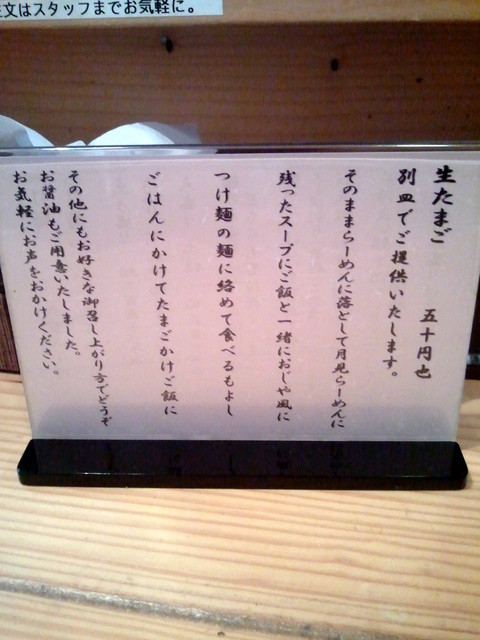 文はスタッフまでお気軽に。
生たまご　五十円也
別皿でご提供いたします。
そのままらーめんに落として月見らーめんに
残ったスープにご飯と一緒におじや風に
つけ麺の麺に絡めて食べるもよし
ごはんにかけてたまごかけご飯に
その他にもお好きな御召し上がり方でどうぞ
お醤油もご用意いたしました。
お気軽にお声をおかけください。